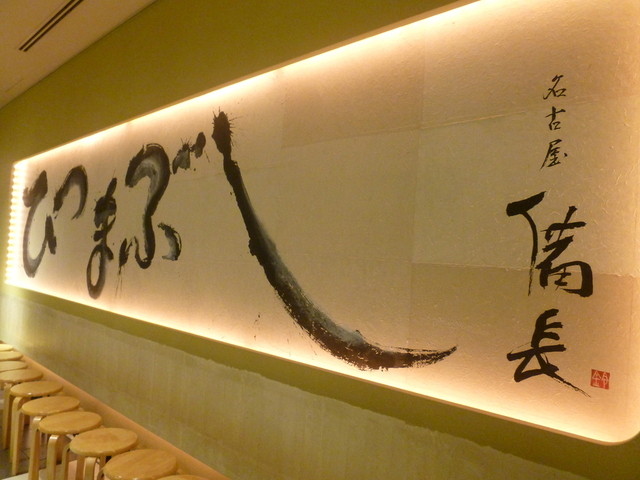 ひつまぶし
名古屋
備長